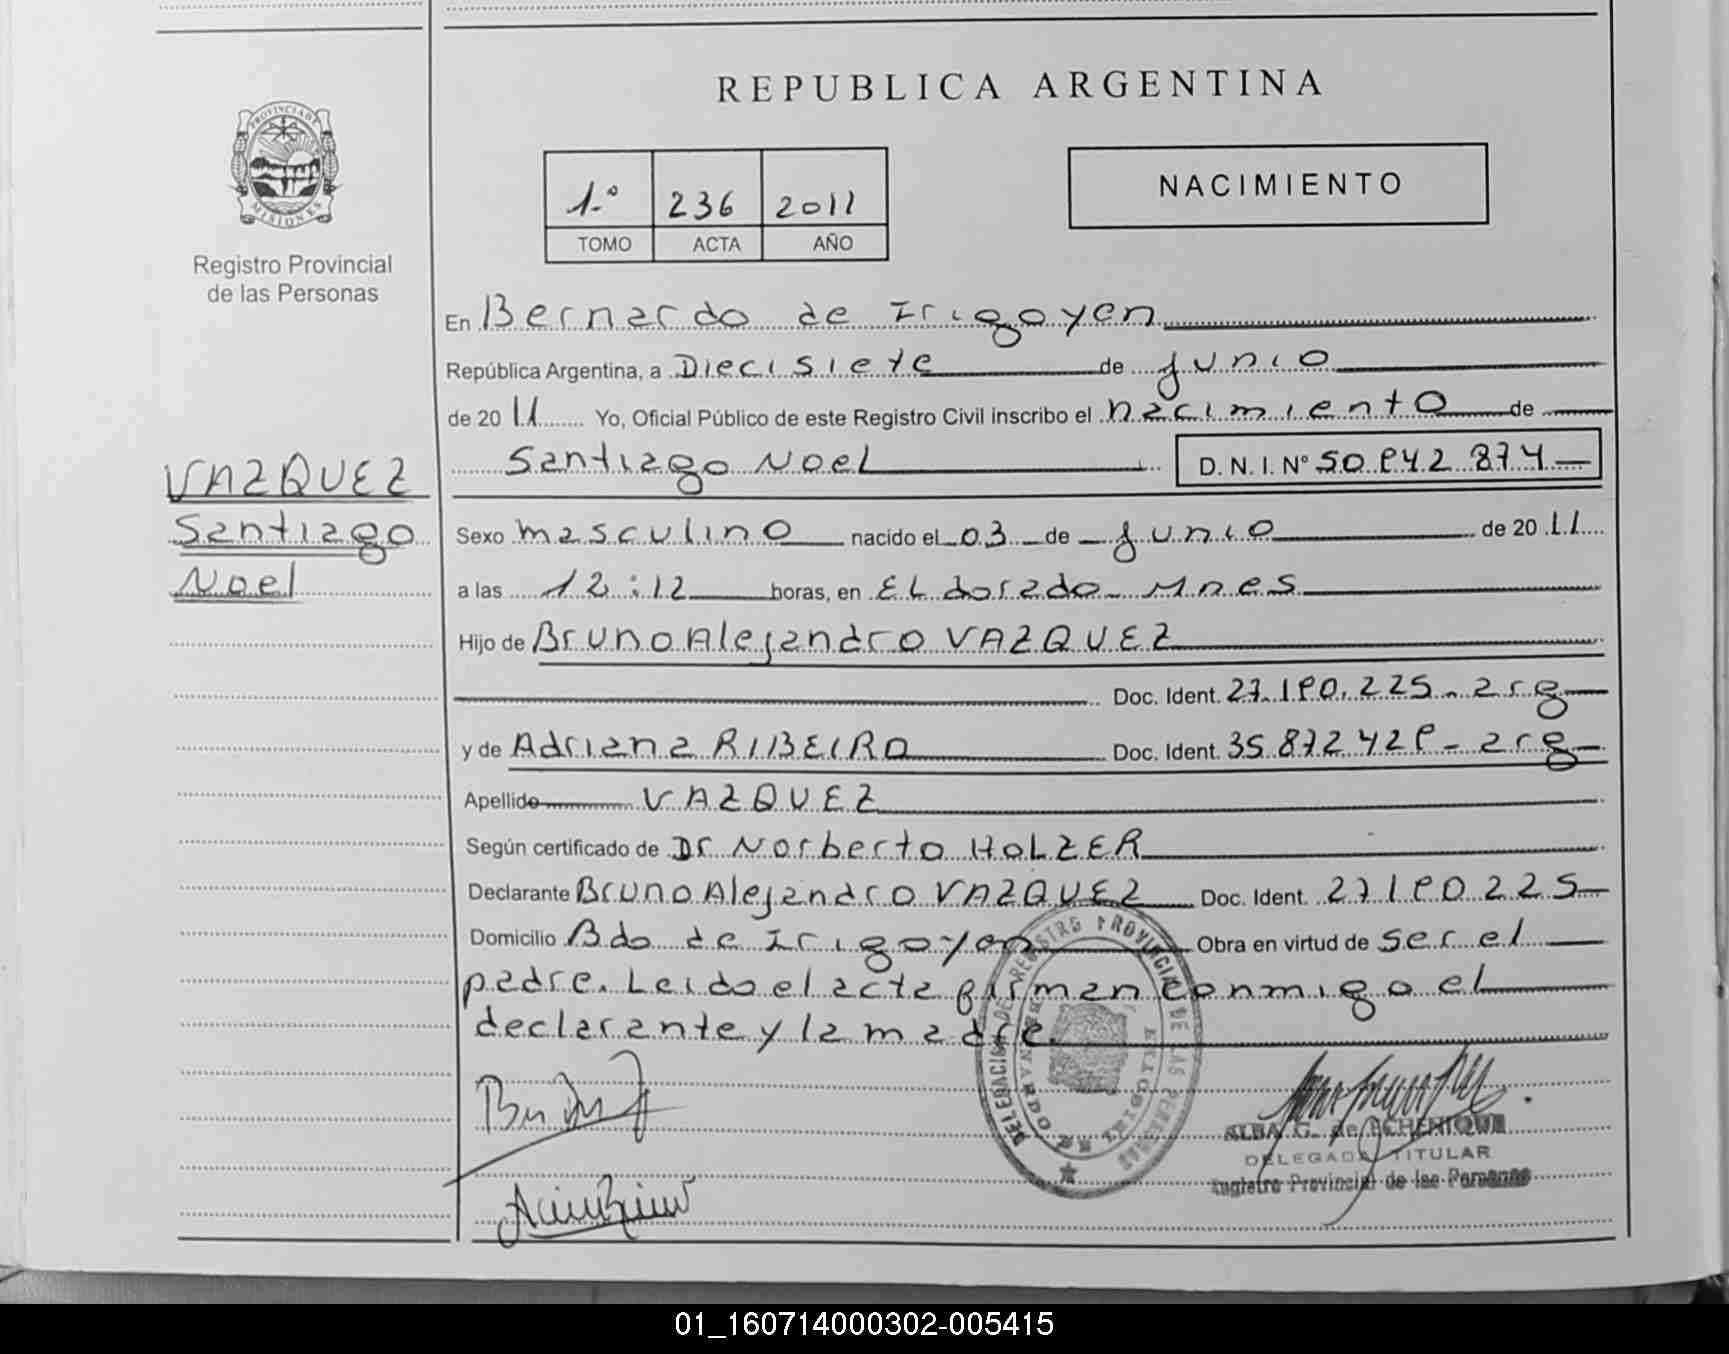 REPUBLICA ARGENTINA
PROVINCIA DE MISIONES
Registro Provincial
de las Personas
1.º 236 2011
TOMO ACTA AÑO
NACIMIENTO
En Bernardo de Irigoyen
República Argentina, a Diecisiete de junio
de 2011 Yo, Oficial Público de este Registro Civil inscribo el nacimiento de
Santiago Noel D.N.I. Nº 50.842.874
VAZQUEZ
Santiago
Noel
Sexo masculino nacido el 03 de junio de 2011
a las 12:12 horas, en ELdorado Mnes
Hijo de Bruno Alejandro VAZQUEZ
Doc. Ident. 27.180.225 - arg
y de Adriana RIBEIRO Doc. Ident. 35.872428 - arg
Apellido VAZQUEZ
Según certificado de Dr Norberto HOLZER
Declarante Bruno Alejandro VAZQUEZ Doc. Ident. 27180225
Domicilio Bdo de Irigoyen Obra en virtud de Ser el
padre. Leido el acta firman conmigo el
declarante y la madre.
DELEGACION DE REGISTRO PROVINCIAL DE LAS PERSONAS
ALBA G. de ECHENIQUE
DELEGADA TITULAR
Registro Provincial de las Personas
01_160714000302-005415